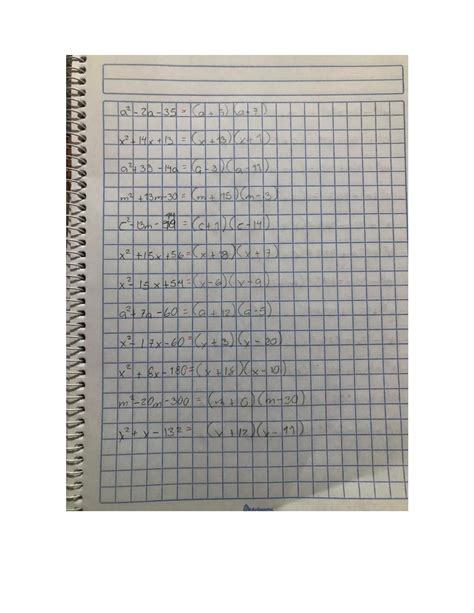 a² - 2a - 35 = (a + 5) (a + 7)
x² + 14x + 13 = (x + 13) (x + 1)
a² + 33 - 14a = (a - 3) (a - 11)
m² + 13m - 30 = (m + 15) (m - 3)
c² - 13m - 14 = (c + 1) (c - 14)
x² + 15x + 56 = (x + 8) (x + 7)
x² - 15x + 54 = (x - 6) (x - 9)
a² + 7a - 60 = (a + 12) (a - 5)
x² - 17x - 60 = (x + 3) (x - 20)
x² + 8x - 180 = (x + 18) (x - 10)
m² - 20m - 300 = (m + 0) (m - 30)
x² + x - 132 = (x + 12) (x - 11)